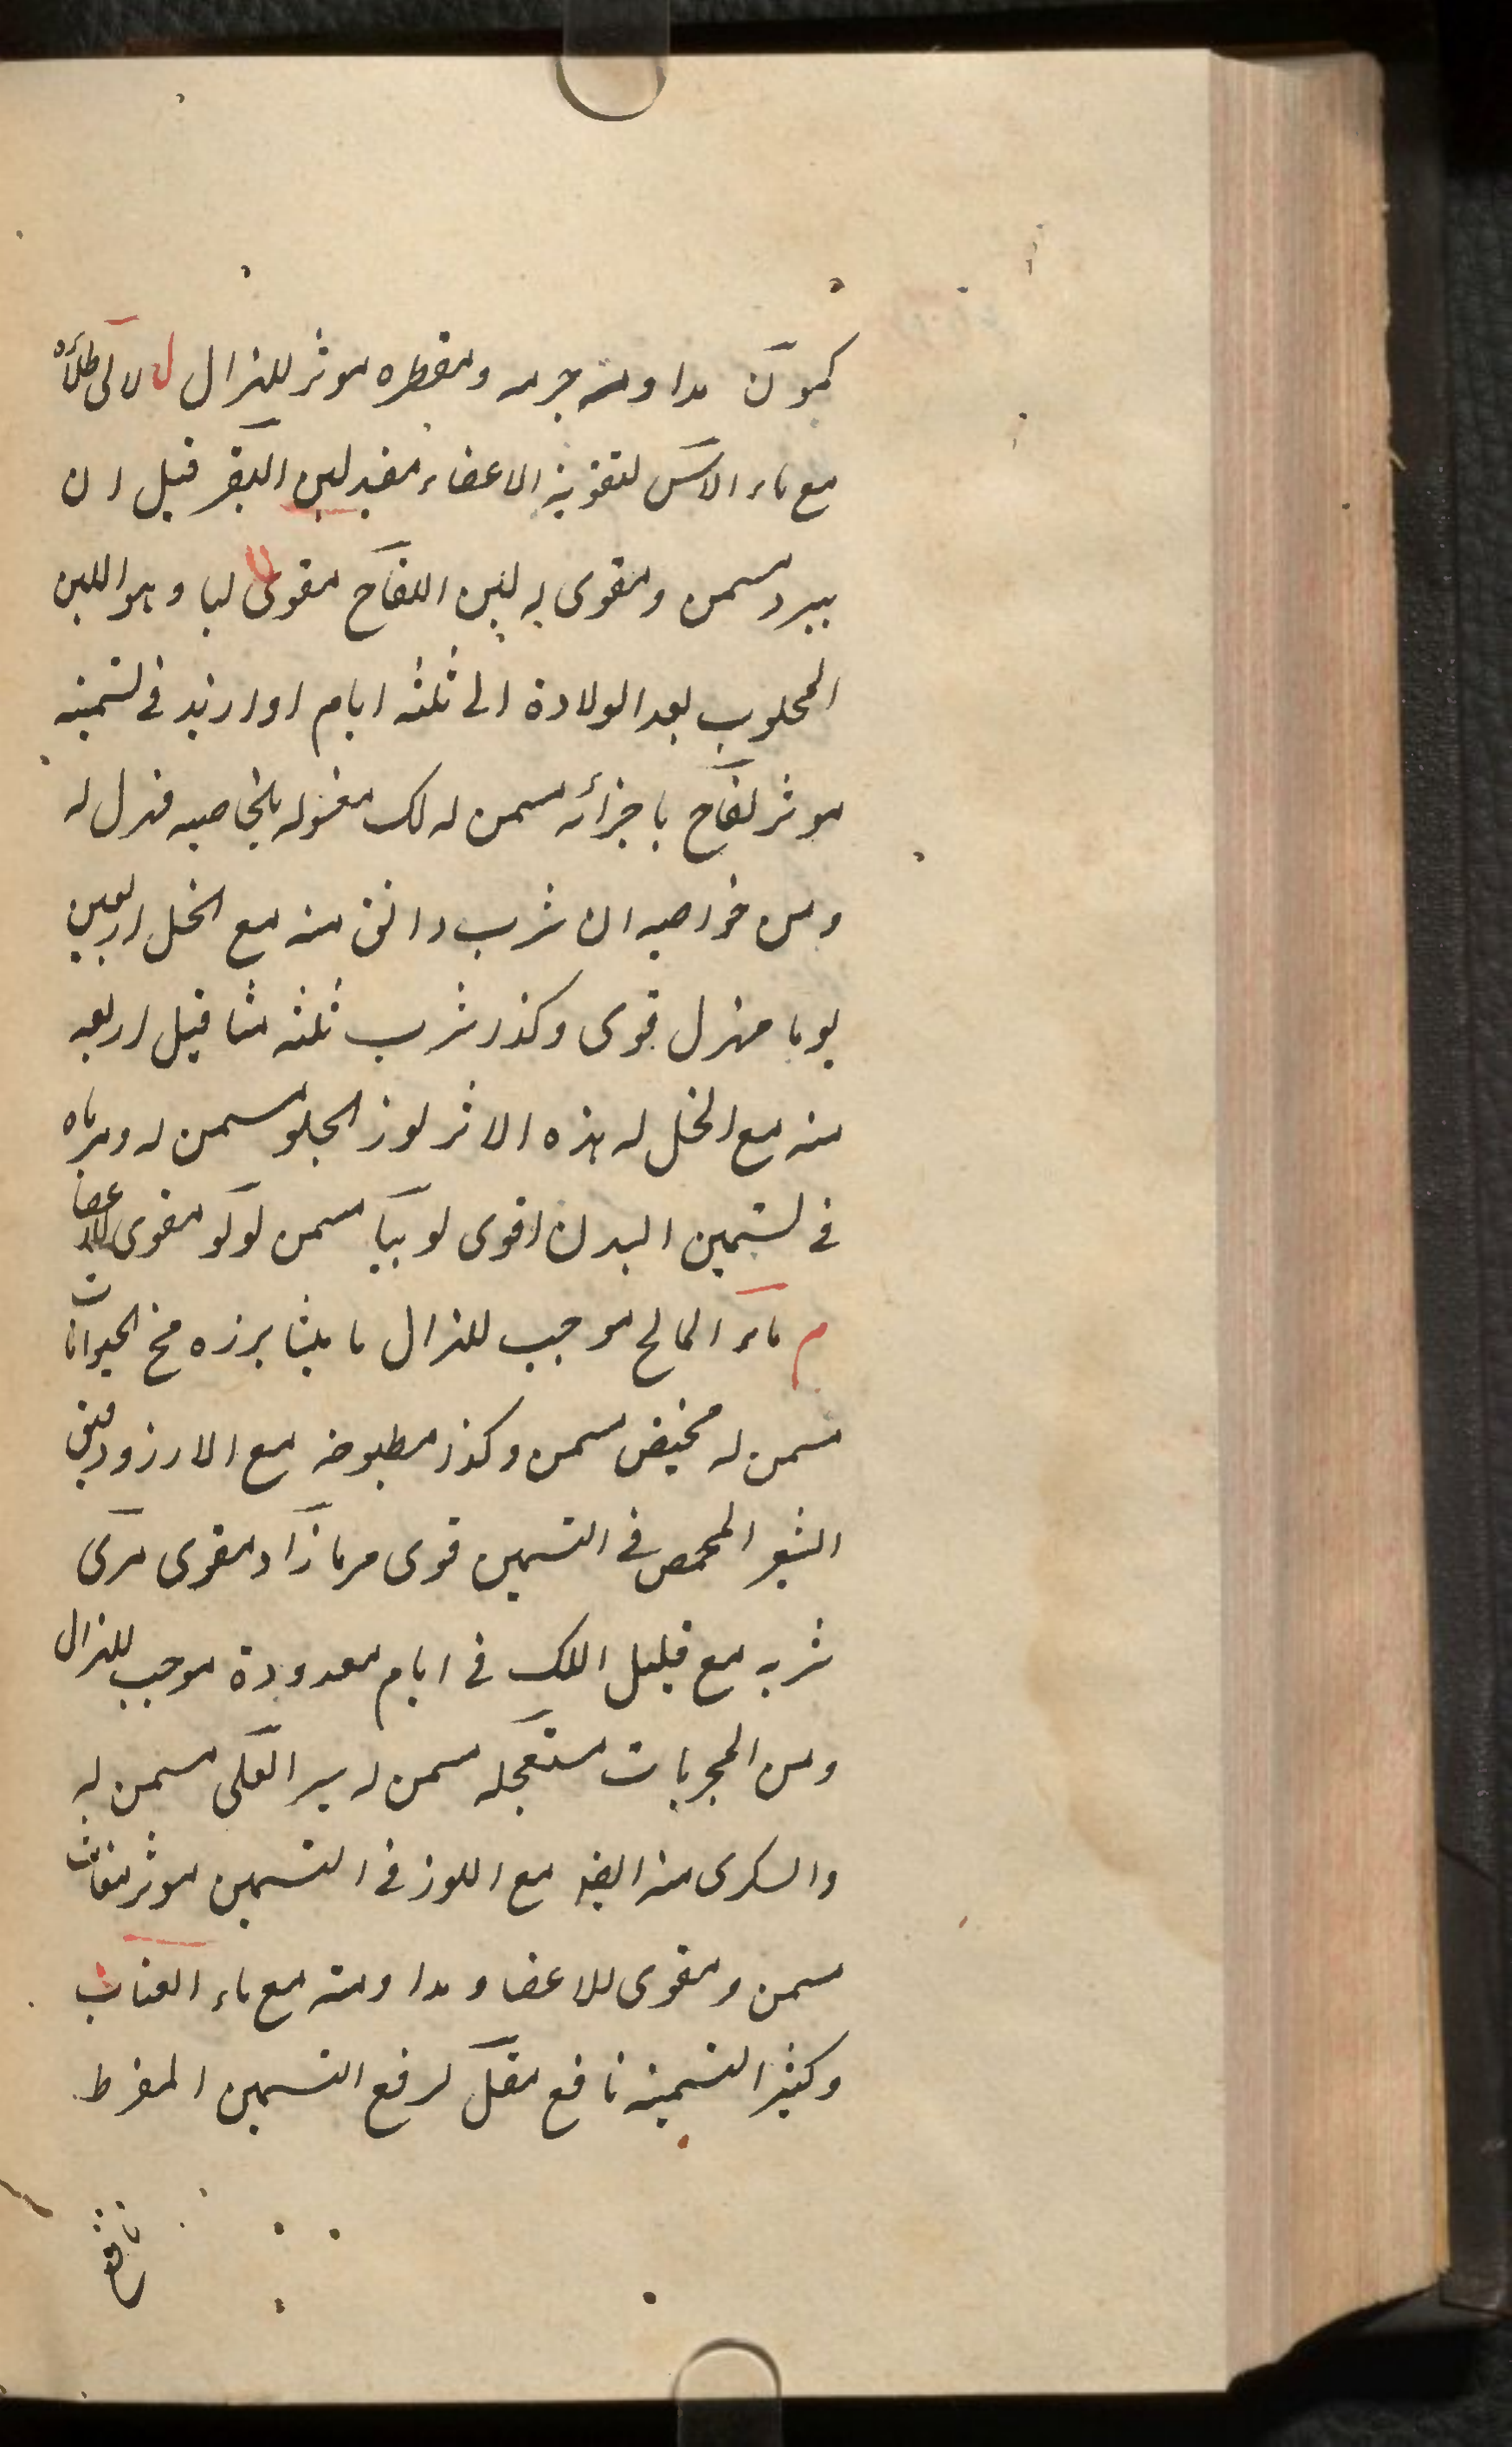 كمون مداومة جرمه ومقطره موثر للهزال ل لالى طلاؤه
مع ماء الاس لتقوية الاعضاء مفيد لبن البقر قبل ان
يبرد مسمن ومقوى له لبن اللقاح مقوى لبا وهو اللبن
المحلوب بعد الولادة الى ثلثه ايام او ازيد فى تسمينه
موثر لفاح باجزائه مسمن له لك مغسوله بالخاصيه مهزل له
ومن خواصه ان شرب دانق منه مع الخل اربعين
يوما مهزل قوى وكذا شرب ثلثه مثاقيل اربعه
منه مع الخل له هذه الاثر لوز الحلو مسمن له ومرباه
فى تسمين البدن اقوى لوبيا مسمن لولو مقوى للاعضا
م ماء المالح موجب للهزال مخ الحيوانات
مسمن له مخيض مسمن وكذا مطبوخه مع الارز ودقيق
الشعير المحمص فى التسمين قوى مرمازاد مقوى مرى
شربه مع قليل اللك فى ايام معدودة موجب للهزال
ومن المجربات مستعجله مسمن له العكى مسمن له
والسكرى منه ايضا مع اللوز فى التسمين موثر مغاث
مسمن ومقوى للاعضا ومداومته مع ماء العناب
وكثير التسمينه نافع مقل لرفع التسمين المفرط
نافع